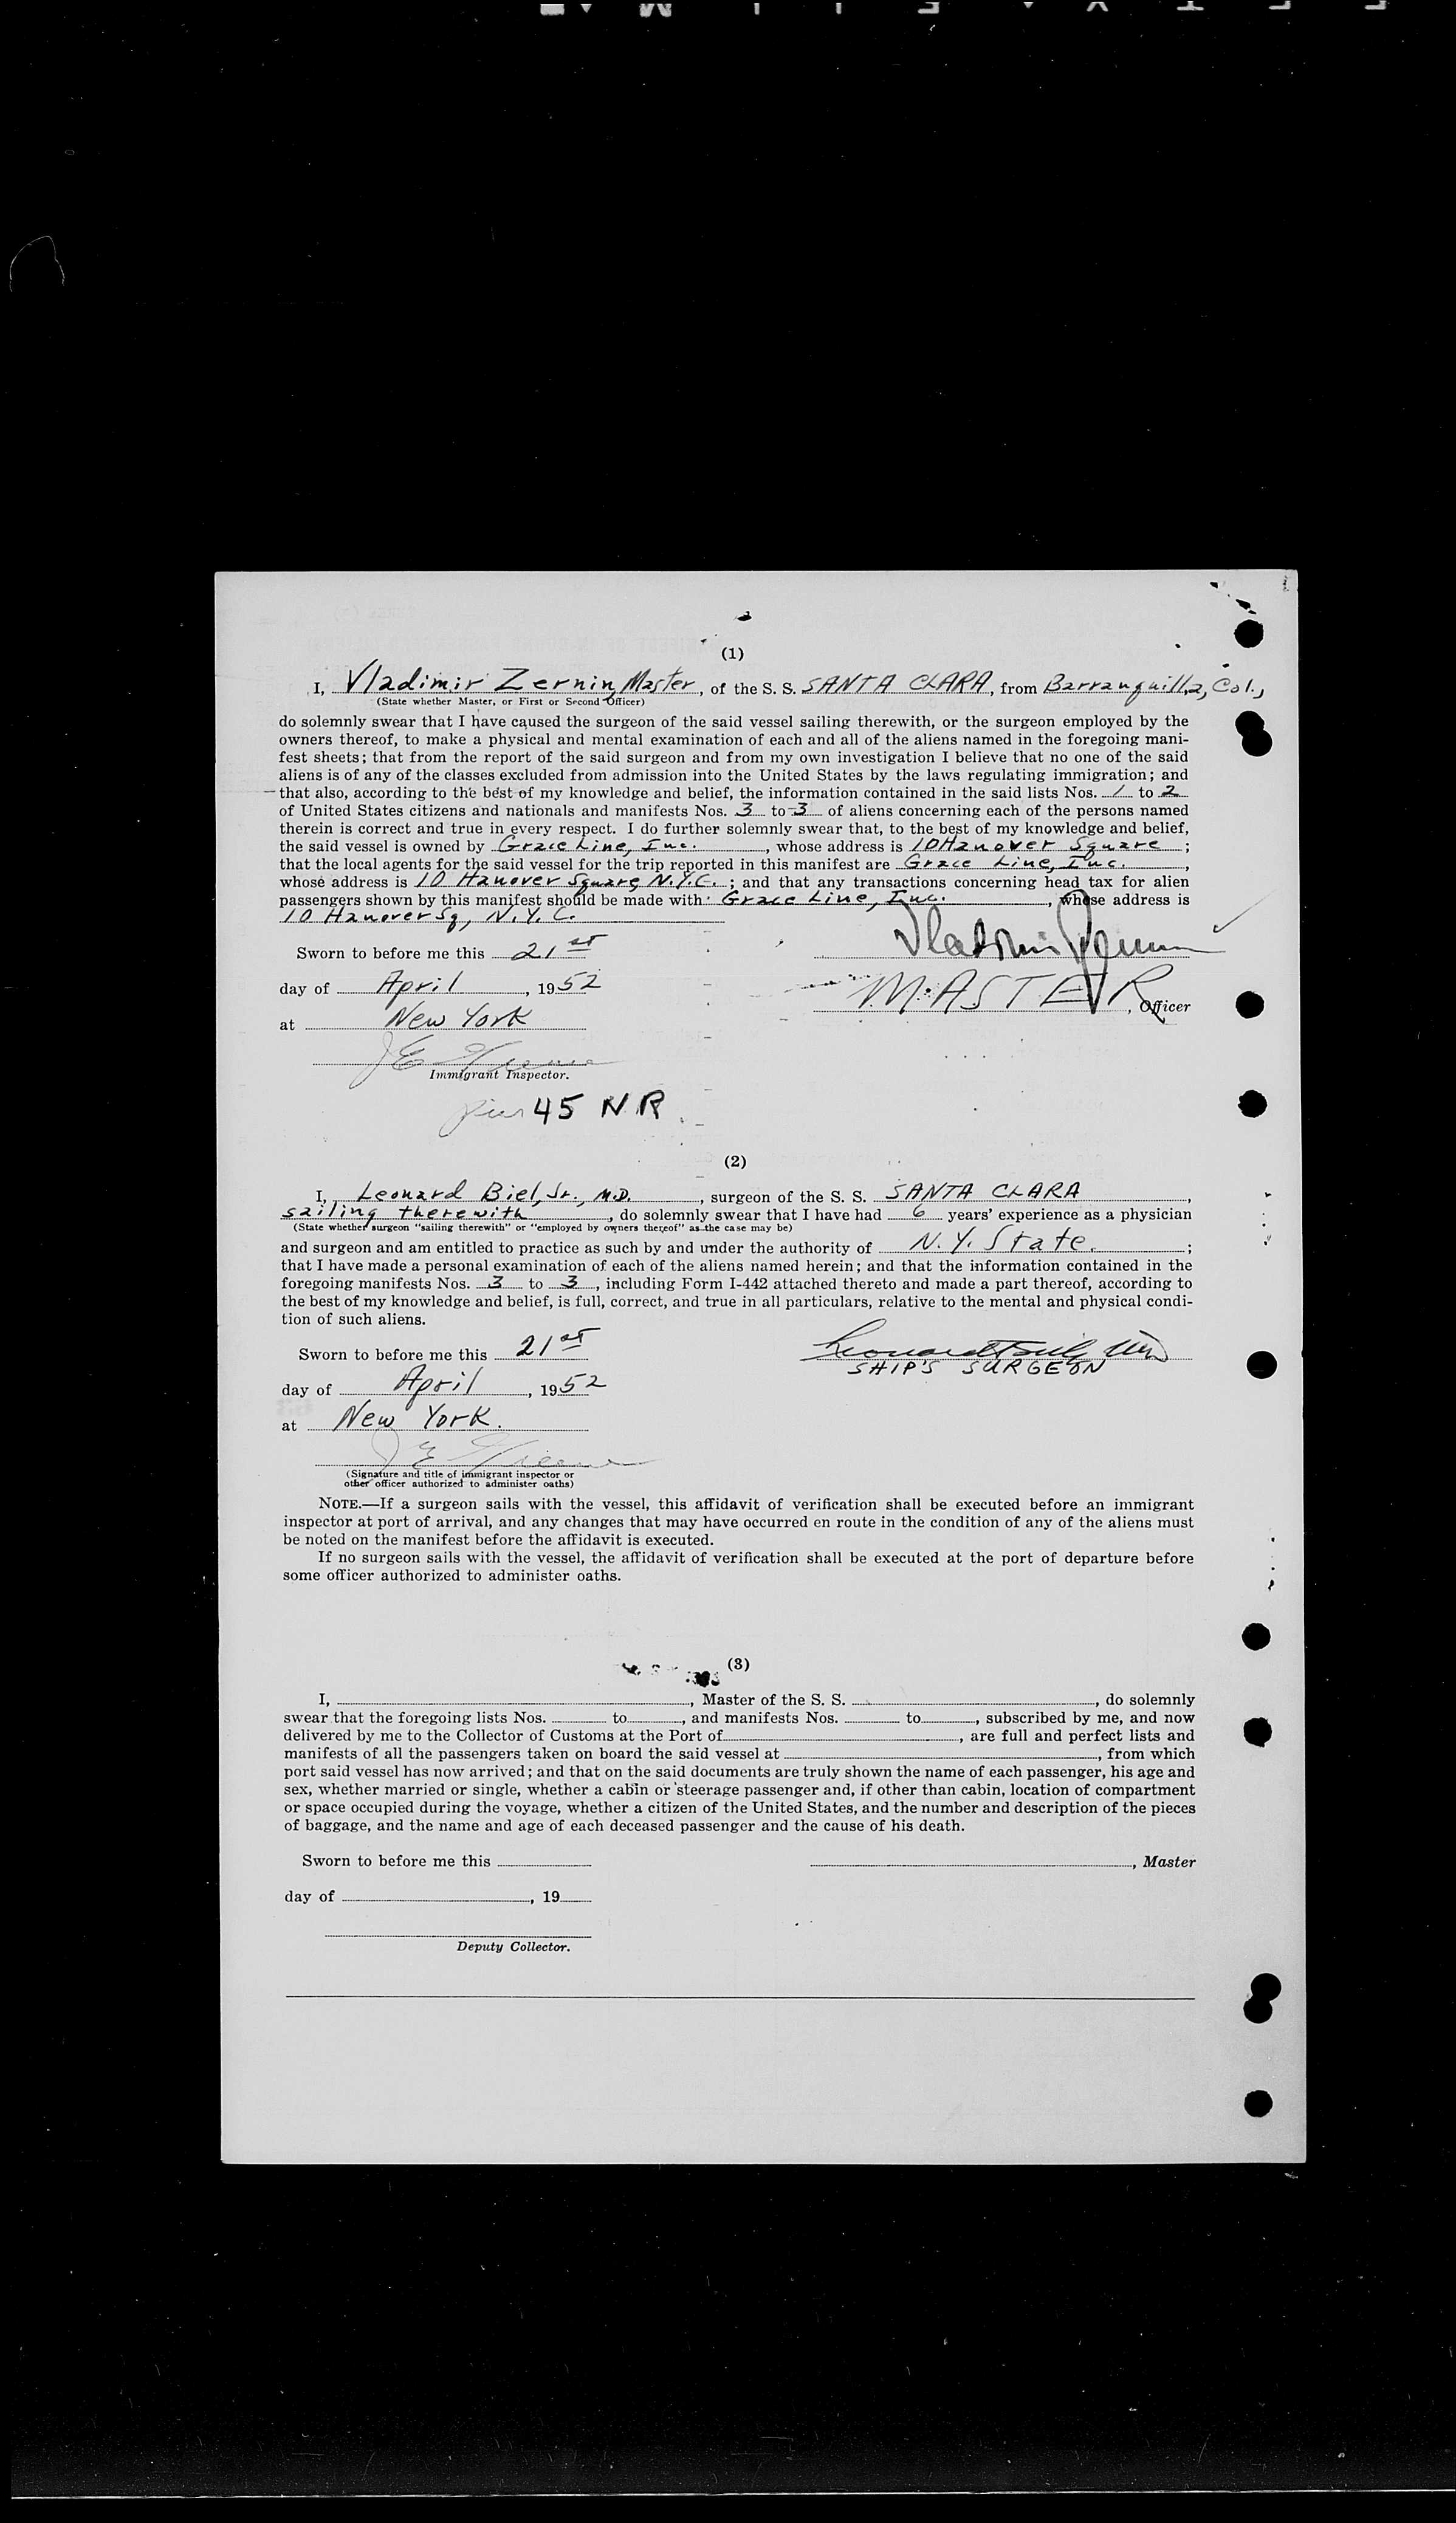 (1)
I, Vladimir Zernin, Master, of the S. S. SANTA CLARA, from Barranquilla, Col.,
(State whether Master, or First or Second Officer)
do solemnly swear that I have caused the surgeon of the said vessel sailing therewith, or the surgeon employed by the
owners thereof, to make a physical and mental examination of each and all of the aliens named in the foregoing mani-
fest sheets; that from the report of the said surgeon and from my own investigation I believe that no one of the said
aliens is of any of the classes excluded from admission into the United States by the laws regulating immigration; and
that also, according to the best of my knowledge and belief, the information contained in the said lists Nos. 1 to 2
of United States citizens and nationals and manifests Nos. 3 to 3 of aliens concerning each of the persons named
therein is correct and true in every respect. I do further solemnly swear that, to the best of my knowledge and belief,
the said vessel is owned by Grace Line, Inc., whose address is 10 Hanover Square;
that the local agents for the said vessel for the trip reported in this manifest are Grace Line, Inc.,
whose address is 10 Hanover Square, N.Y.C.; and that any transactions concerning head tax for alien
passengers shown by this manifest should be made with Grace Line, Inc., whose address is
10 Hanover Sq, N.Y.C.
Sworn to before me this 21st Vladimir Zernin
day of April, 1952 MASTER, Officer
at New York
J E Greene
Immigrant Inspector.
pier 45 N.R.
(2)
I, Leonard Biel, Jr., M.D., surgeon of the S. S. SANTA CLARA,
sailing therewith, do solemnly swear that I have had 6 years' experience as a physician
(State whether surgeon "sailing therewith" or "employed by owners thereof" as the case may be)
and surgeon and am entitled to practice as such by and under the authority of N.Y. State.;
that I have made a personal examination of each of the aliens named herein; and that the information contained in the
foregoing manifests Nos. 3 to 3, including Form I-442 attached thereto and made a part thereof, according to
the best of my knowledge and belief, is full, correct, and true in all particulars, relative to the mental and physical condi-
tion of such aliens.
Sworn to before me this 21st
SHIP'S SURGEON
day of April, 1952
at New York.
J E Greene
(Signature and title of immigrant inspector or
other officer authorized to administer oaths)
NOTE.—If a surgeon sails with the vessel, this affidavit of verification shall be executed before an immigrant
inspector at port of arrival, and any changes that may have occurred en route in the condition of any of the aliens must
be noted on the manifest before the affidavit is executed.
If no surgeon sails with the vessel, the affidavit of verification shall be executed at the port of departure before
some officer authorized to administer oaths.
(3)
I, , Master of the S. S. , do solemnly
swear that the foregoing lists Nos. to , and manifests Nos. to , subscribed by me, and now
delivered by me to the Collector of Customs at the Port of , are full and perfect lists and
manifests of all the passengers taken on board the said vessel at , from which
port said vessel has now arrived; and that on the said documents are truly shown the name of each passenger, his age and
sex, whether married or single, whether a cabin or steerage passenger and, if other than cabin, location of compartment
or space occupied during the voyage, whether a citizen of the United States, and the number and description of the pieces
of baggage, and the name and age of each deceased passenger and the cause of his death.
Sworn to before me this , Master
day of , 19
Deputy Collector.